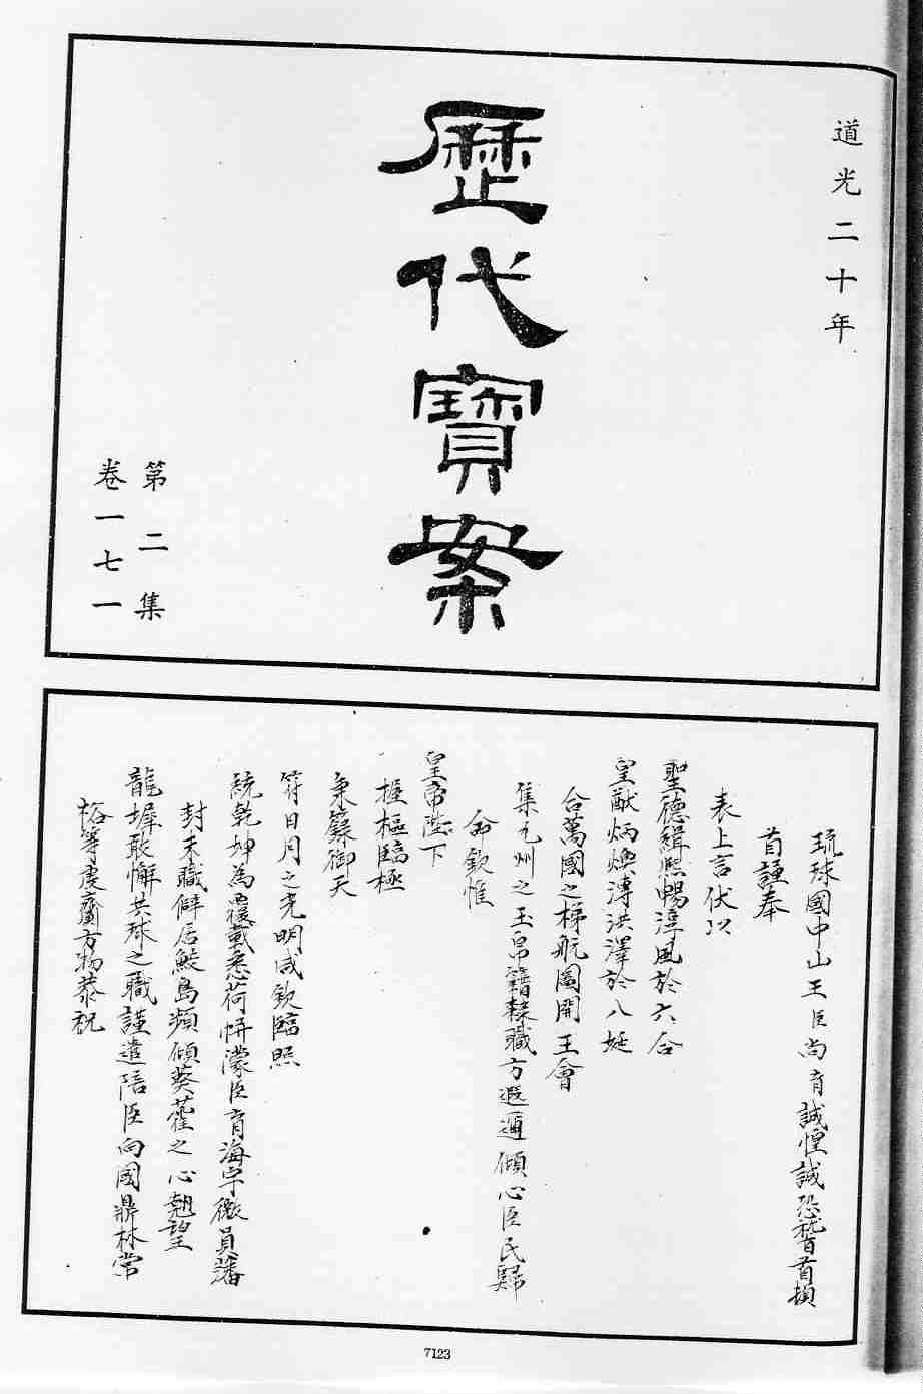 道光二十年
歷代寶案
第二集
卷一七一
琉球國中山王臣尚育誠惶誠恐稽首頓
首謹奉
表上言伏以
聖德緝熙暢淳風於六合
皇猷炳煥溥洪澤於八埏
合萬國之梯航圖開王會
集九州之玉帛籍隸職方遐邇傾心臣民歸
命欽惟
皇帝陛下
握樞臨極
秉籙御天
符日月之光明咸欽臨照
統乾坤為覆載悉荷帡濛臣育海宇微員藩
封末職僻居鮫島頻傾葵藿之心翹望
龍墀敢懈共球之職謹遣陪臣向國鼎林常
裕等虔齎方物恭祝
7123